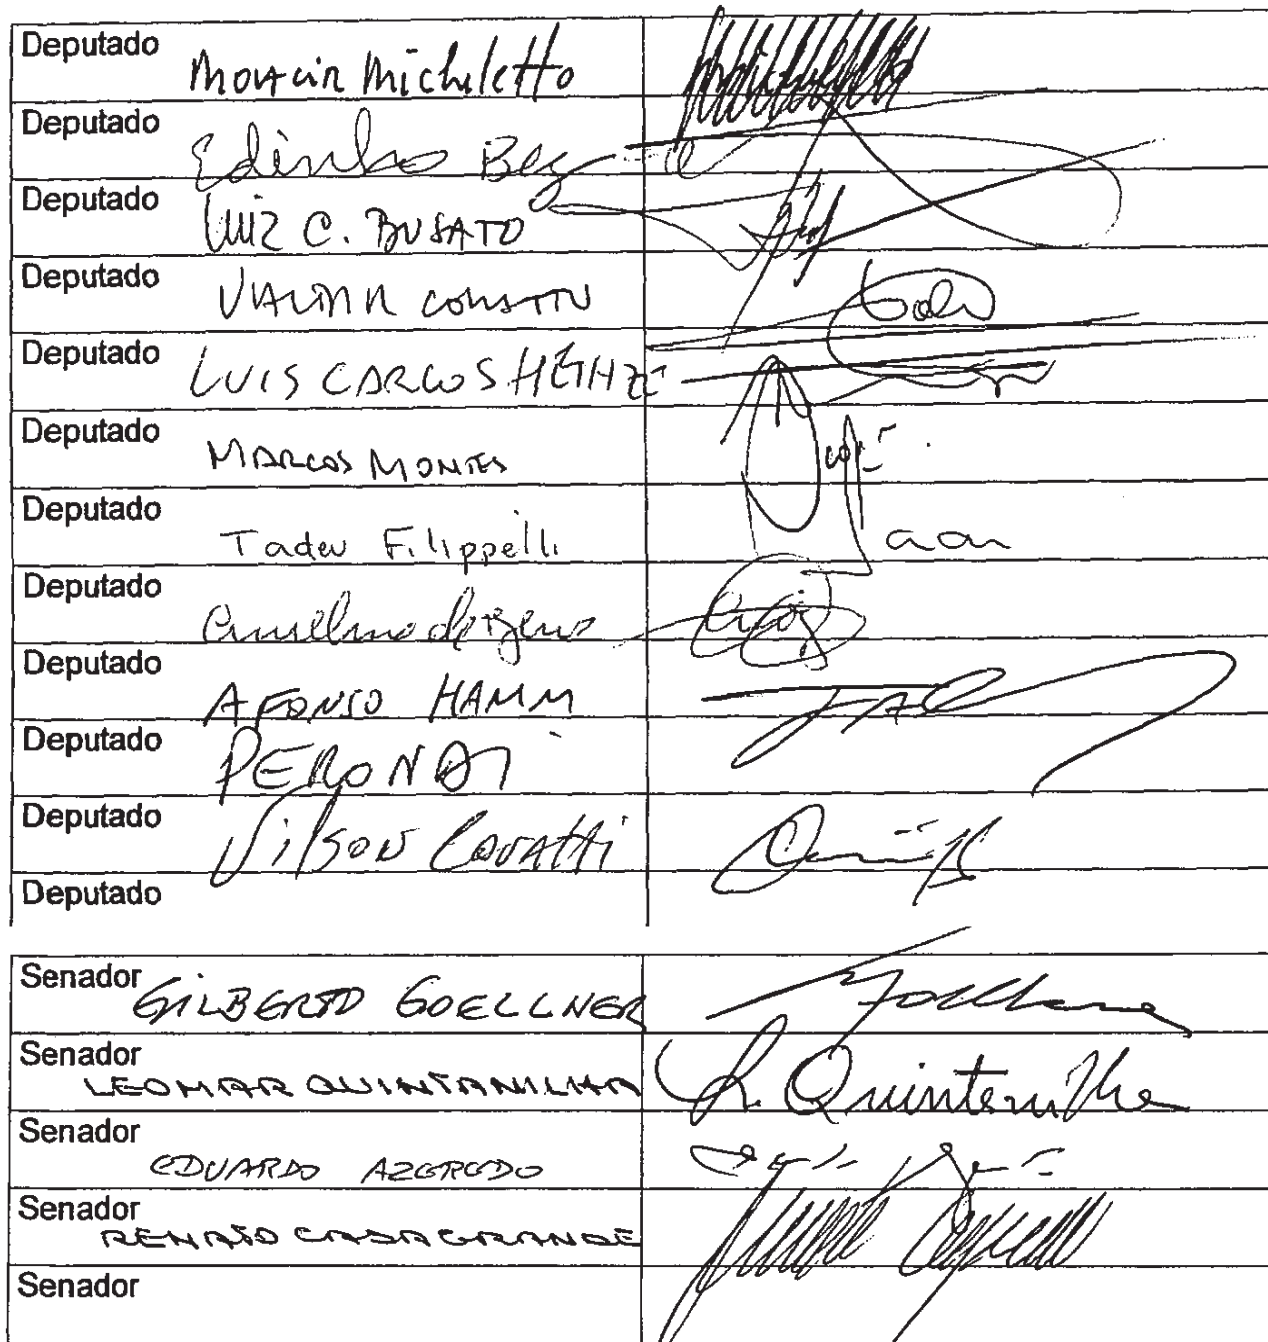 Deputado Moacir Micheletto
Deputado Edinho Bez
Deputado LUIZ C. BUSATO
Deputado VALDIR COLATTO
Deputado LUIS CARLOS HEINZE
Deputado MARCOS MONTES
Deputado Tadeu Filippelli
Deputado Anselmo de Jesus
Deputado AFONSO HAMM
Deputado PERONDI
Deputado Vilson Covatti
Deputado
Senador GILBERTO GOELLNER Goellner
Senador LEOMAR QUINTANILHA L. Quintanilha
Senador EDUARDO AZEREDO
Senador RENATO CASAGRANDE
Senador